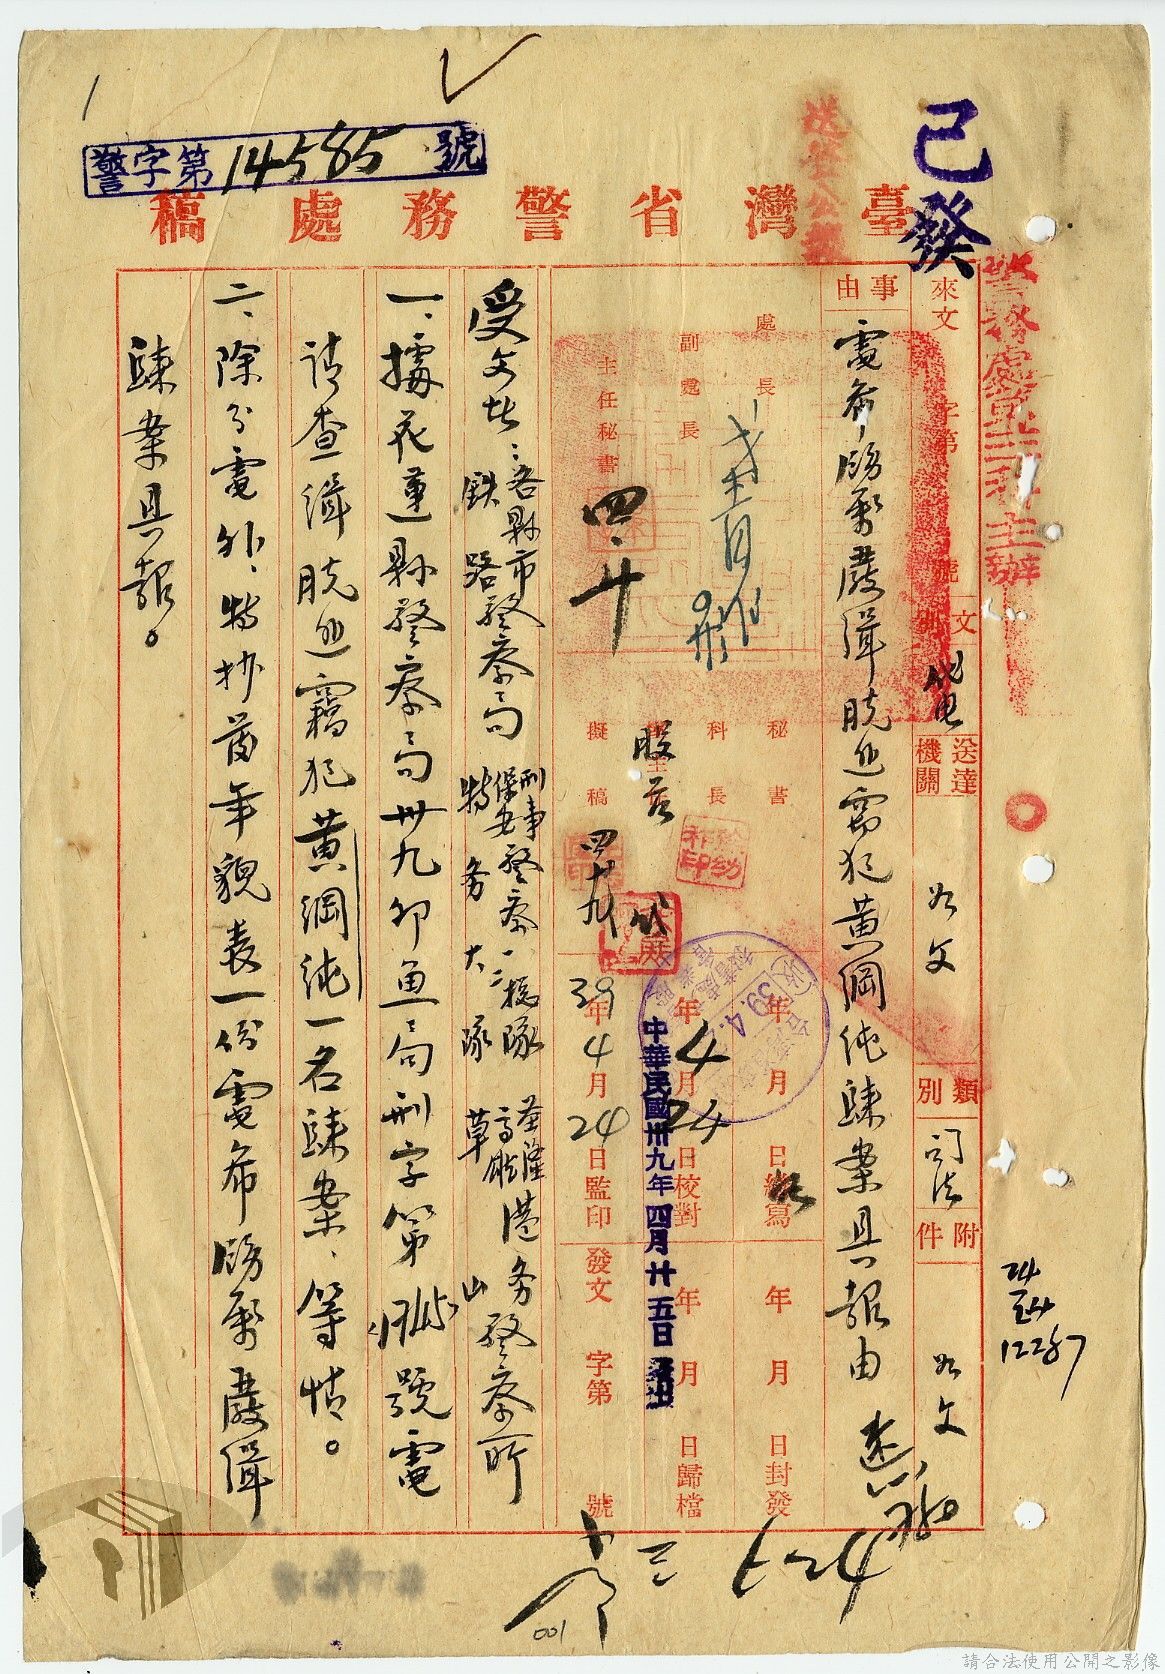 已發
送登公報
警字第14585號
臺灣省警務處稿
警務處第三科主辦
來文 字第 號
文別 代电
送達機關 如文
類別 司法
附件 如文
事由
電希飭屬嚴緝脫逃竊犯黃綱純歸案具報由
處長
副處長
主任秘書
秘書
科長
股主任
擬稿
年 月 日繕寫
年 4月 24日校對
39年 4月 24日監印
年 月 日封發
年 月 日歸檔
發文 字第 號
中華民國卅九年四月廿五日
39.4.
受文者：各縣市警察局 刑事 保安警察一、二總隊 基隆 高雄港务警察所
鉄路 特务大隊 草山
一、據花蓮縣警察局卅九卯魚局刑字第 號電
請查緝脫逃竊犯黃綱純一名歸案、等情。
二、除分電外、特抄發年貌表一份電希飭屬嚴緝
歸案具報。
12287
001
請合法使用公開之影像